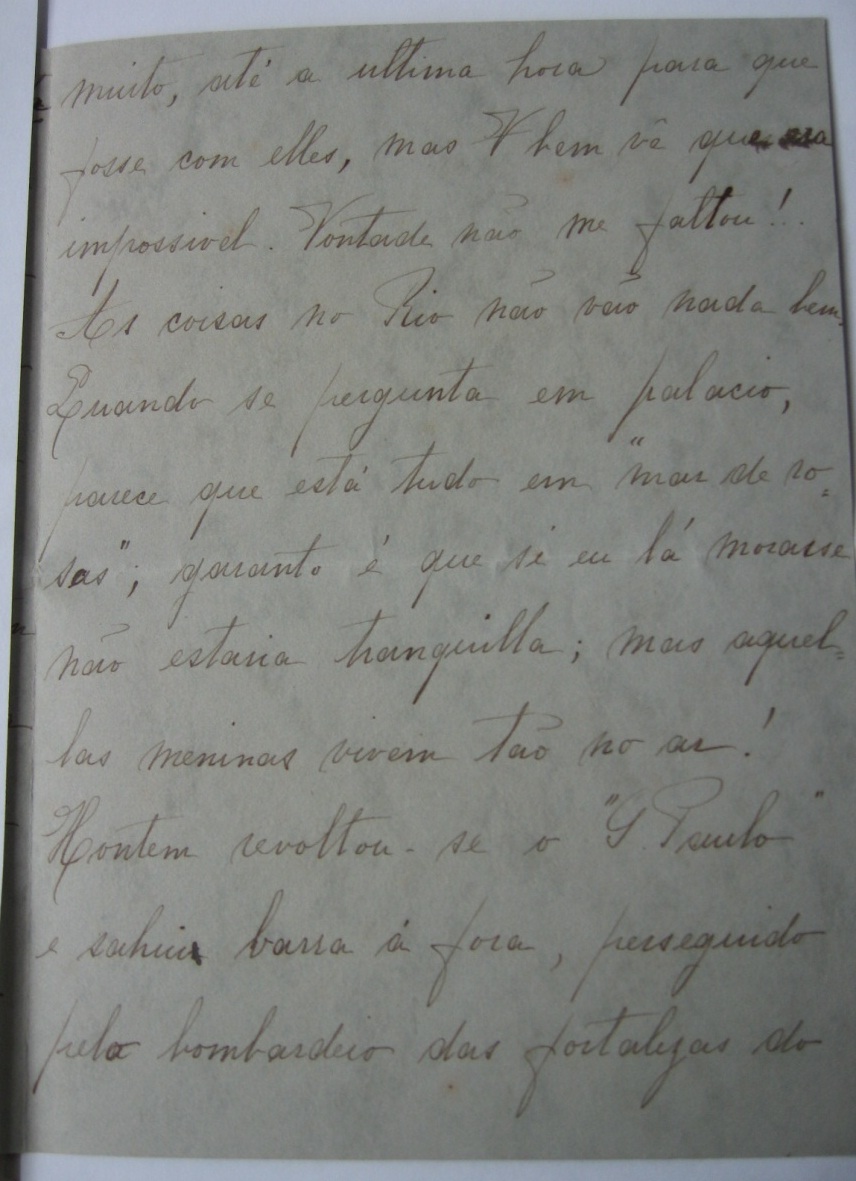 muito, até a ultima hora para que
fosse com elles, mas V bem vê que era
impossivel. Vontade não me faltou!.
As coisas no Rio não vão nada bem.
Quando se pergunta em palacio,
parece que está tudo em "mar de ro=
sas"; garanto é que si eu lá morasse
não estaria tranquilla; mas aquel=
las meninas vivem tão no ar!
Hontem revoltou-se o "S. Paulo"
e sahiu barra á fora, perseguido
pelo bombardeio das fortalezas do